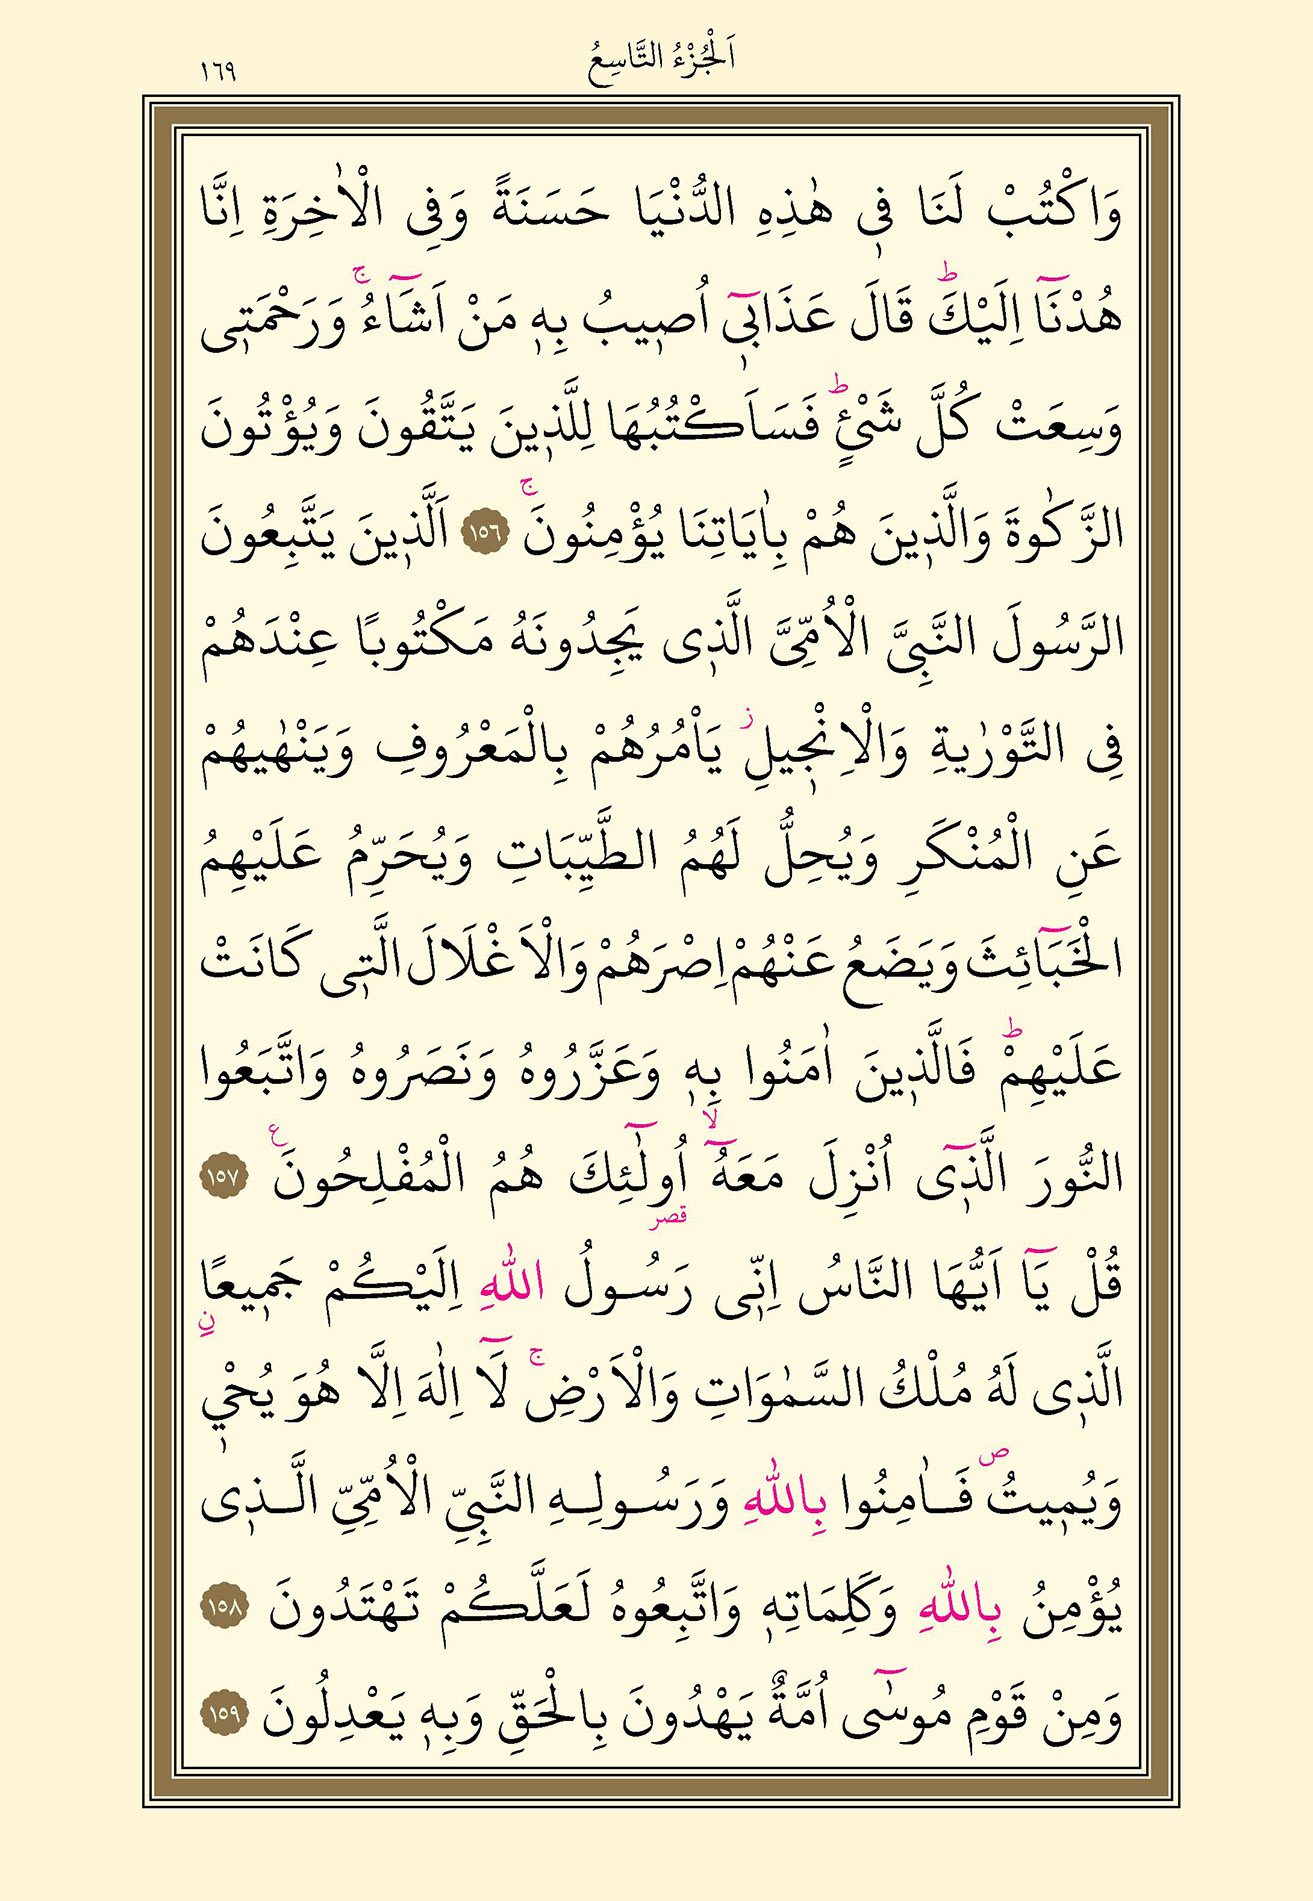 اَلْجُزْءُ التَّاسِعُ
١٦٩
وَاكْتُبْ لَنَا ف۪ي هٰذِهِ الدُّنْيَا حَسَنَةً وَفِي الْاٰخِرَةِ اِنَّا
هُدْنَٓا اِلَيْكَۜ قَالَ عَذَاب۪ٓي اُص۪يبُ بِه۪ مَنْ اَشَٓاءُۚ وَرَحْمَت۪ي
وَسِعَتْ كُلَّ شَيْءٍۜ فَسَاَكْتُبُهَا لِلَّذ۪ينَ يَتَّقُونَ وَيُؤْتُونَ
الزَّكٰوةَ وَالَّذ۪ينَ هُمْ بِاٰيَاتِنَا يُؤْمِنُونَۚ ﴿١٥٦﴾ اَلَّذ۪ينَ يَتَّبِعُونَ
الرَّسُولَ النَّبِيَّ الْاُمِّيَّ الَّذ۪ي يَجِدُونَهُ مَكْتُوبًا عِنْدَهُمْ
فِي التَّوْرٰيةِ وَالْاِنْج۪يلِ ز يَاْمُرُهُمْ بِالْمَعْرُوفِ وَيَنْهٰيهُمْ
عَنِ الْمُنْكَرِ وَيُحِلُّ لَهُمُ الطَّيِّبَاتِ وَيُحَرِّمُ عَلَيْهِمُ
الْخَبَٓائِثَ وَيَضَعُ عَنْهُمْ اِصْرَهُمْ وَالْاَغْلَالَ الَّت۪ي كَانَتْ
عَلَيْهِمْۜ فَالَّذ۪ينَ اٰمَنُوا بِه۪ وَعَزَّرُوهُ وَنَصَرُوهُ وَاتَّبَعُوا
النُّورَ الَّذ۪ٓي اُنْزِلَ مَعَهُٓۙ اُو۬لٰٓئِكَ هُمُ الْمُفْلِحُونَ ع ﴿١٥٧﴾
قصر
قُلْ يَٓا اَيُّهَا النَّاسُ اِنّ۪ي رَسُولُ اللّٰهِ اِلَيْكُمْ جَم۪يعًا نِ
الَّذ۪ي لَهُ مُلْكُ السَّمٰوَاتِ وَالْاَرْضِۚ لَٓا اِلٰهَ اِلَّا هُوَ يُحْي۪ي
وَيُم۪يتُۖ فَاٰمِنُوا بِاللّٰهِ وَرَسُولِهِ النَّبِيِّ الْاُمِّيِّ الَّذ۪ي
يُؤْمِنُ بِاللّٰهِ وَكَلِمَاتِه۪ وَاتَّبِعُوهُ لَعَلَّكُمْ تَهْتَدُونَ ﴿١٥٨﴾
وَمِنْ قَوْمِ مُوسٰٓى اُمَّةٌ يَهْدُونَ بِالْحَقِّ وَبِه۪ يَعْدِلُونَ ﴿١٥٩﴾